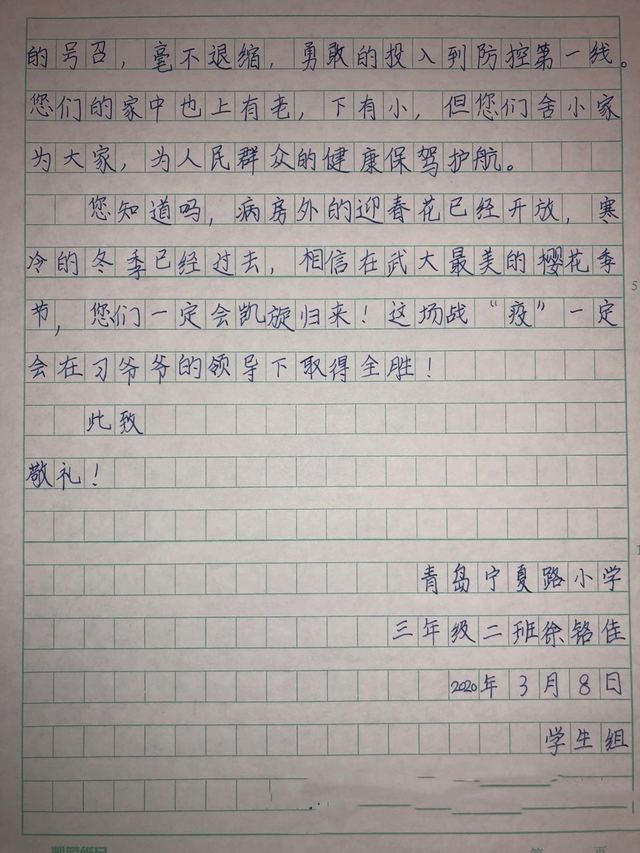 的号召，毫不退缩，勇敢的投入到防控第一线。
您们的家中也上有老，下有小，但您们舍小家
为大家，为人民群众的健康保驾护航。
您知道吗，病房外的迎春花已经开放，寒
冷的冬季已经过去，相信在武大最美的樱花季
节，您们一定会凯旋归来！这场战“疫”一定
会在习爷爷的领导下取得全胜！
此致
敬礼！
青岛宁夏路小学
三年级二班徐铭佳
2020年3月8日
学生组
5
第 页